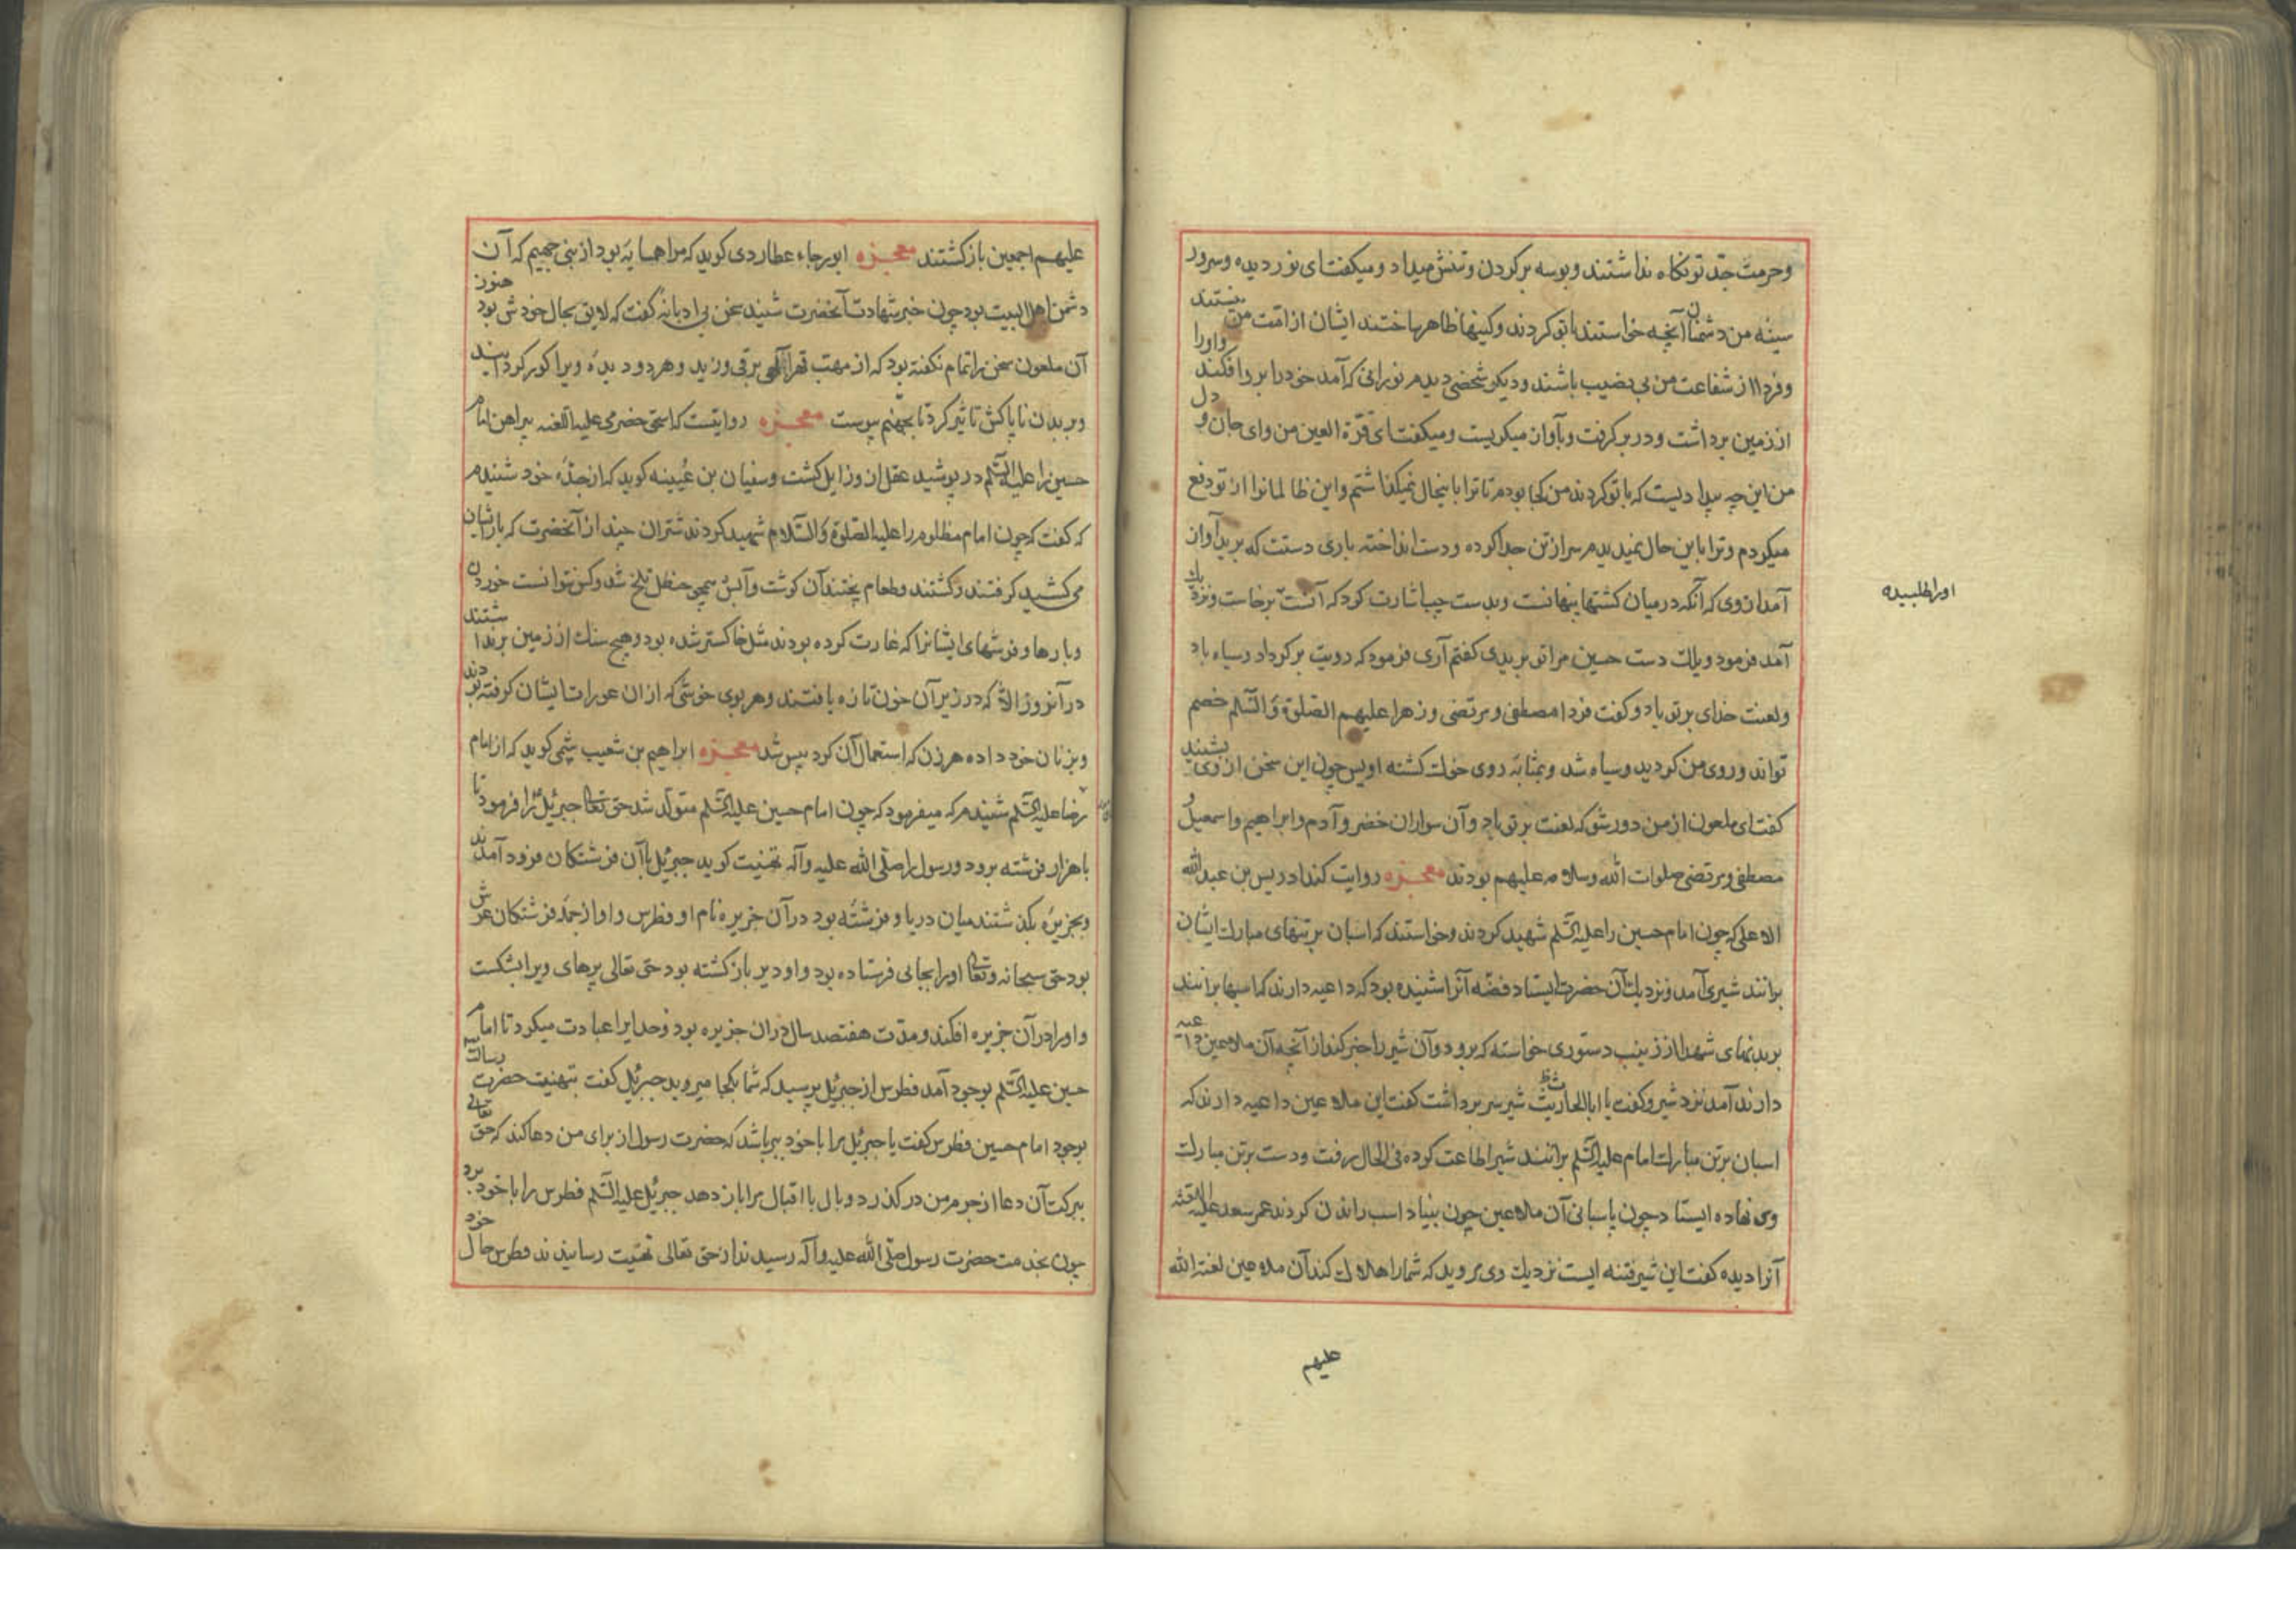 وحرمت جدّ تو نکاه نداشتند وبوسه بر کردن وتنش میداد ومیکفت ای نور دیده وسرور
سینه من دشمنان آنچه خواستند باتو کردند وکینها ظاهر ساختند ایشان از امت من نیستند
وفردا از شفاعت من بی نصیب باشند ودیکر شخصی دیدم نورانی که آمد خود را بر وی افکند واورا
از زمین برداشت ودر بر کرفت وبآواز میکریست ومیکفت ای قرّة العین من وای جان و دل
من این چه بیدادیست که باتو کردند من کجا بودم تا ترا باینحال نمیکذاشتم واین ظالمانرا از تو دفع
میکردم وترا باین حال نمیدیدم سر از تن جدا کرده ودست انداخته باری دستت که برید آواز
آمد از وی که آنکه در میان کشتها پنهانست وبدست چپ اشارت کرد که آنست برخاست ونزدیک
اورا طلبیده
آمد فرمود ویلک دست حسین مرا تو بریدی کفتم آری فرمود که رویت بر کرداد وسیاه باد
ولعنت خدای بر تو باد وکفت فردا مصطفی ومرتضی وزهرا علیهم الصلوة والسّلم خصم
تو اند وروی من کردید وسیاه شد وبمثابه روی خوک کشته اویس چون این سخن از وی بشنید
کفت ای ملعون از من دور شو که لعنت بر تو باد وآن سواران خضر وآدم وابراهیم واسمعیل و
مصطفی ومرتضی صلوات الله وسلامه علیهم بودند معجزه روایت کند ادریس بن عبدالله
الاعلی که چون امام حسین را علیه السّلم شهید کردند وخواستند که اسبان بر تنهای مبارک ایشان
برانند شیری آمد ونزدیک آن حضرت ایستاد فضّه آنرا شنیده بود که داعیه دارند که اسبها برانند
بر بدنهای شهدا از زینب دستوری خواسته که برود وآن شیر را خبر کند از آنچه آن ملاعین داعیه
دارند آمد نزد شیر وکفت یا ابا الحارث شیر سر برداشت کفت این ملاعین داعیه دارند که
اسبان بر تن مبارک امام علیه السّلم برانند شیر اطاعت کرده فی الحال برفت ودست بر تن مبارک
وی نهاده ایستاد چون پاسبانی آن ملاعین چون بنیاد اسب راندن کردند عمر سعد علیه اللعنه
آنرا دیده کفت این شیر فتنه ایست نزدیک وی مروید که شما را هلاک کند آن ملاعین لعنة الله
علیهم
علیهم اجمعین باز کشتند معجزه ابو رجاء عطاردی کوید که مرا همسایه بود از بنی جهیم که آن
دشمن اهل البیت بود چون خبر شهادت آنحضرت شنید سخن بی ادبانه کفت که لایق بحال خودش بود هنوز
آن ملعون سخن را تمام نکفته بود که از مهبّ قهر الهی برقی وزید وهر دو دیده ویرا کور کردانید
وبر بدن ناپاکش تاثیر کرد تا بجهنّم پیوست معجزه روایتست که اسحق حضرمی علیه اللعنه پیراهن امام
حسین را علیه السّلم در پوشید عقل از وزایل کشت وسفیان بن عُیینه کوید که از جدّه خود شنیدم
که کفت که چون امام مظلوم را علیه الصلوة والسّلام شهید کردند شتران چند از آنحضرت که بار ایشان
می کشید کرفتند وکشتند وطعام پختند آن کوشت وآبش همچو حنظل تلخ شد وکس نتوانست خوردن
وبارها وفرشهای ایشانرا که غارت کرده بودند مثل خاکستر شده بود وهیچ سنک از زمین برنداشتند
در آنروز الّا که در زیر آن خون تازه یافتند وهر بوی خوشی که از ان عورات ایشان کرفته بودند
وبزنان خود داده هر زن که استعمال آن کرد پیس شد معجزه ابراهیم بن شعیب میثمی کوید که از امام
رضا علیه السّلم شنیدم که میفرمود که چون امام حسین علیه السّلم متولّد شد حق تعالی جبرئیل را فرمود تا
با هزار فرشته برود ورسول را صلّی الله علیه وآله تهنیت کوید جبرئیل با آن فرشتکان فرود آمدند
وبجزیره بکذشتند میان دریا وفرشته بود در آن جزیره نام او فطرس واو از جمله فرشتکان عرش
بود حق سبحانه وتعالی اورا بجائی فرستاده بود واو دیر باز کشته بود حق تعالی پرهای ویرا بشکست
واورا در آن جزیره افکند ومدّت هفتصد سال در ان جزیره بود وخدایرا عبادت میکرد تا امام
حسین علیه السّلم بوجود آمد فطرس از جبرئیل پرسید که شما بکجا میروید جبرئیل کفت بتهنیت حضرت رسالت
بوجود امام حسین فطرس کفت یا جبرئیل مرا با خود ببر باشد که حضرت رسول از برای من دعا کند که حق تعالی
ببرکت آن دعا از جرم من در کذرد وبال با اقبال مرا باز دهد جبرئیل علیه السّلم فطرس را با خود ببرد
چون بخدمت حضرت رسول صلّی الله علیه وآله رسیدند از حق تعالی تهنیت رسانیدند فطرس حال خود